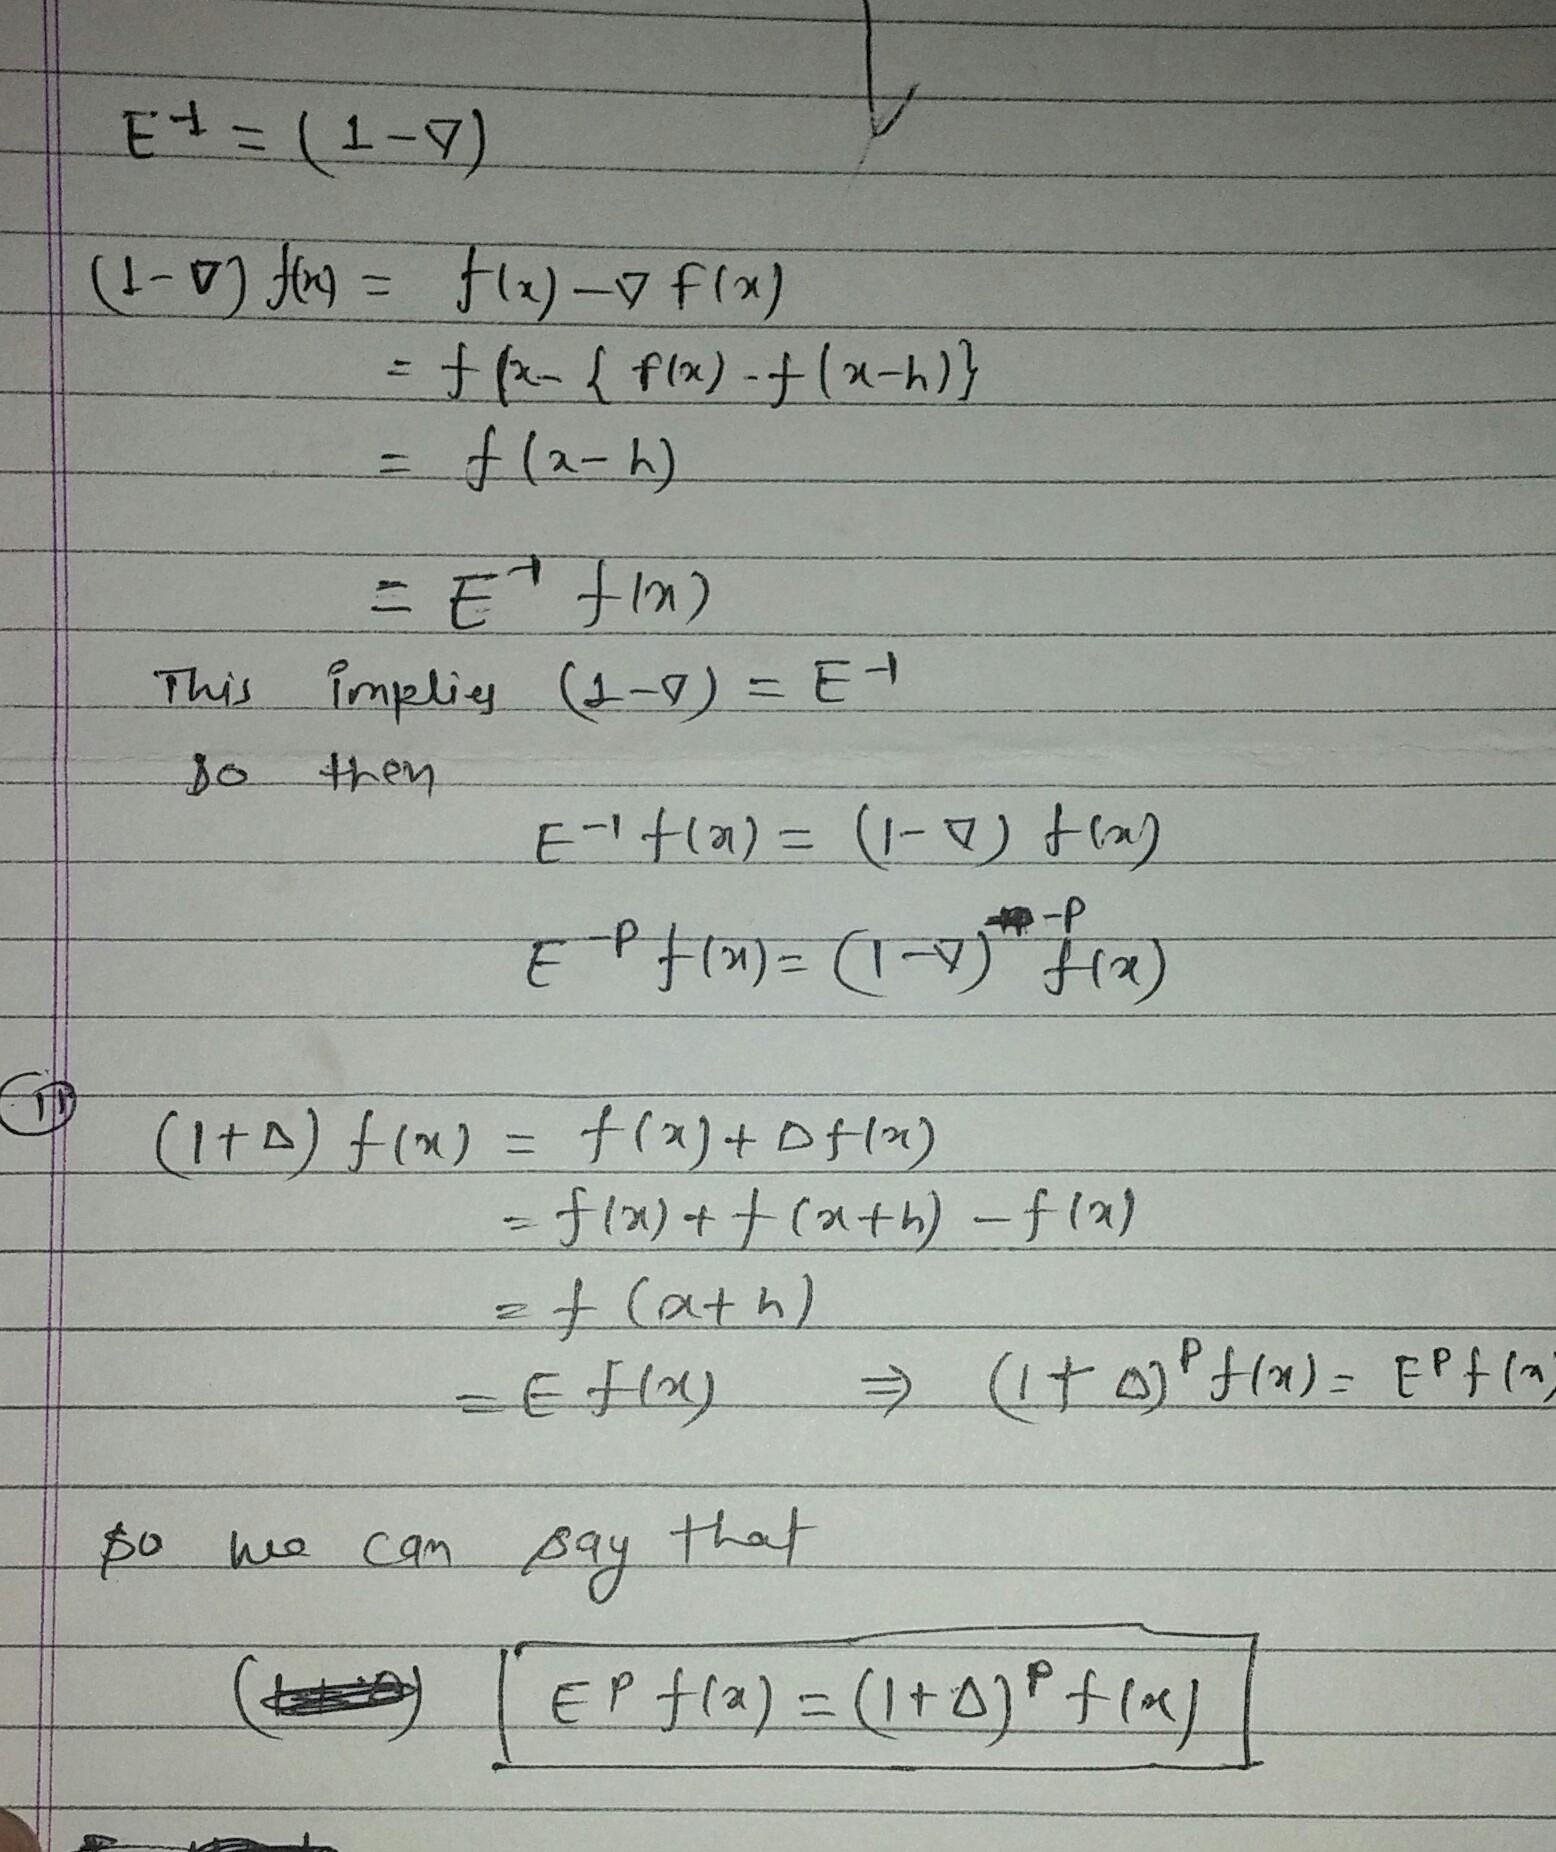 E⁻¹ = (1-∇)
(1-∇) f(x) = f(x) - ∇ f(x)
= f(x - { f(x) - f(x-h)}
= f(x-h)
= E⁻¹ f(x)
This implies (1-∇) = E⁻¹
So then
E⁻¹ f(x) = (1-∇) f(x)
E⁻ᵖ f(x) = (1-∇)⁻ᵖ f(x)
(1+Δ) f(x) = f(x) + Δf(x)
= f(x) + f(x+h) - f(x)
= f(x+h)
= E f(x) ⇒ (1+Δ)ᵖ f(x) = Eᵖ f(x)
So we can say that
Eᵖ f(x) = (1+Δ)ᵖ f(x)